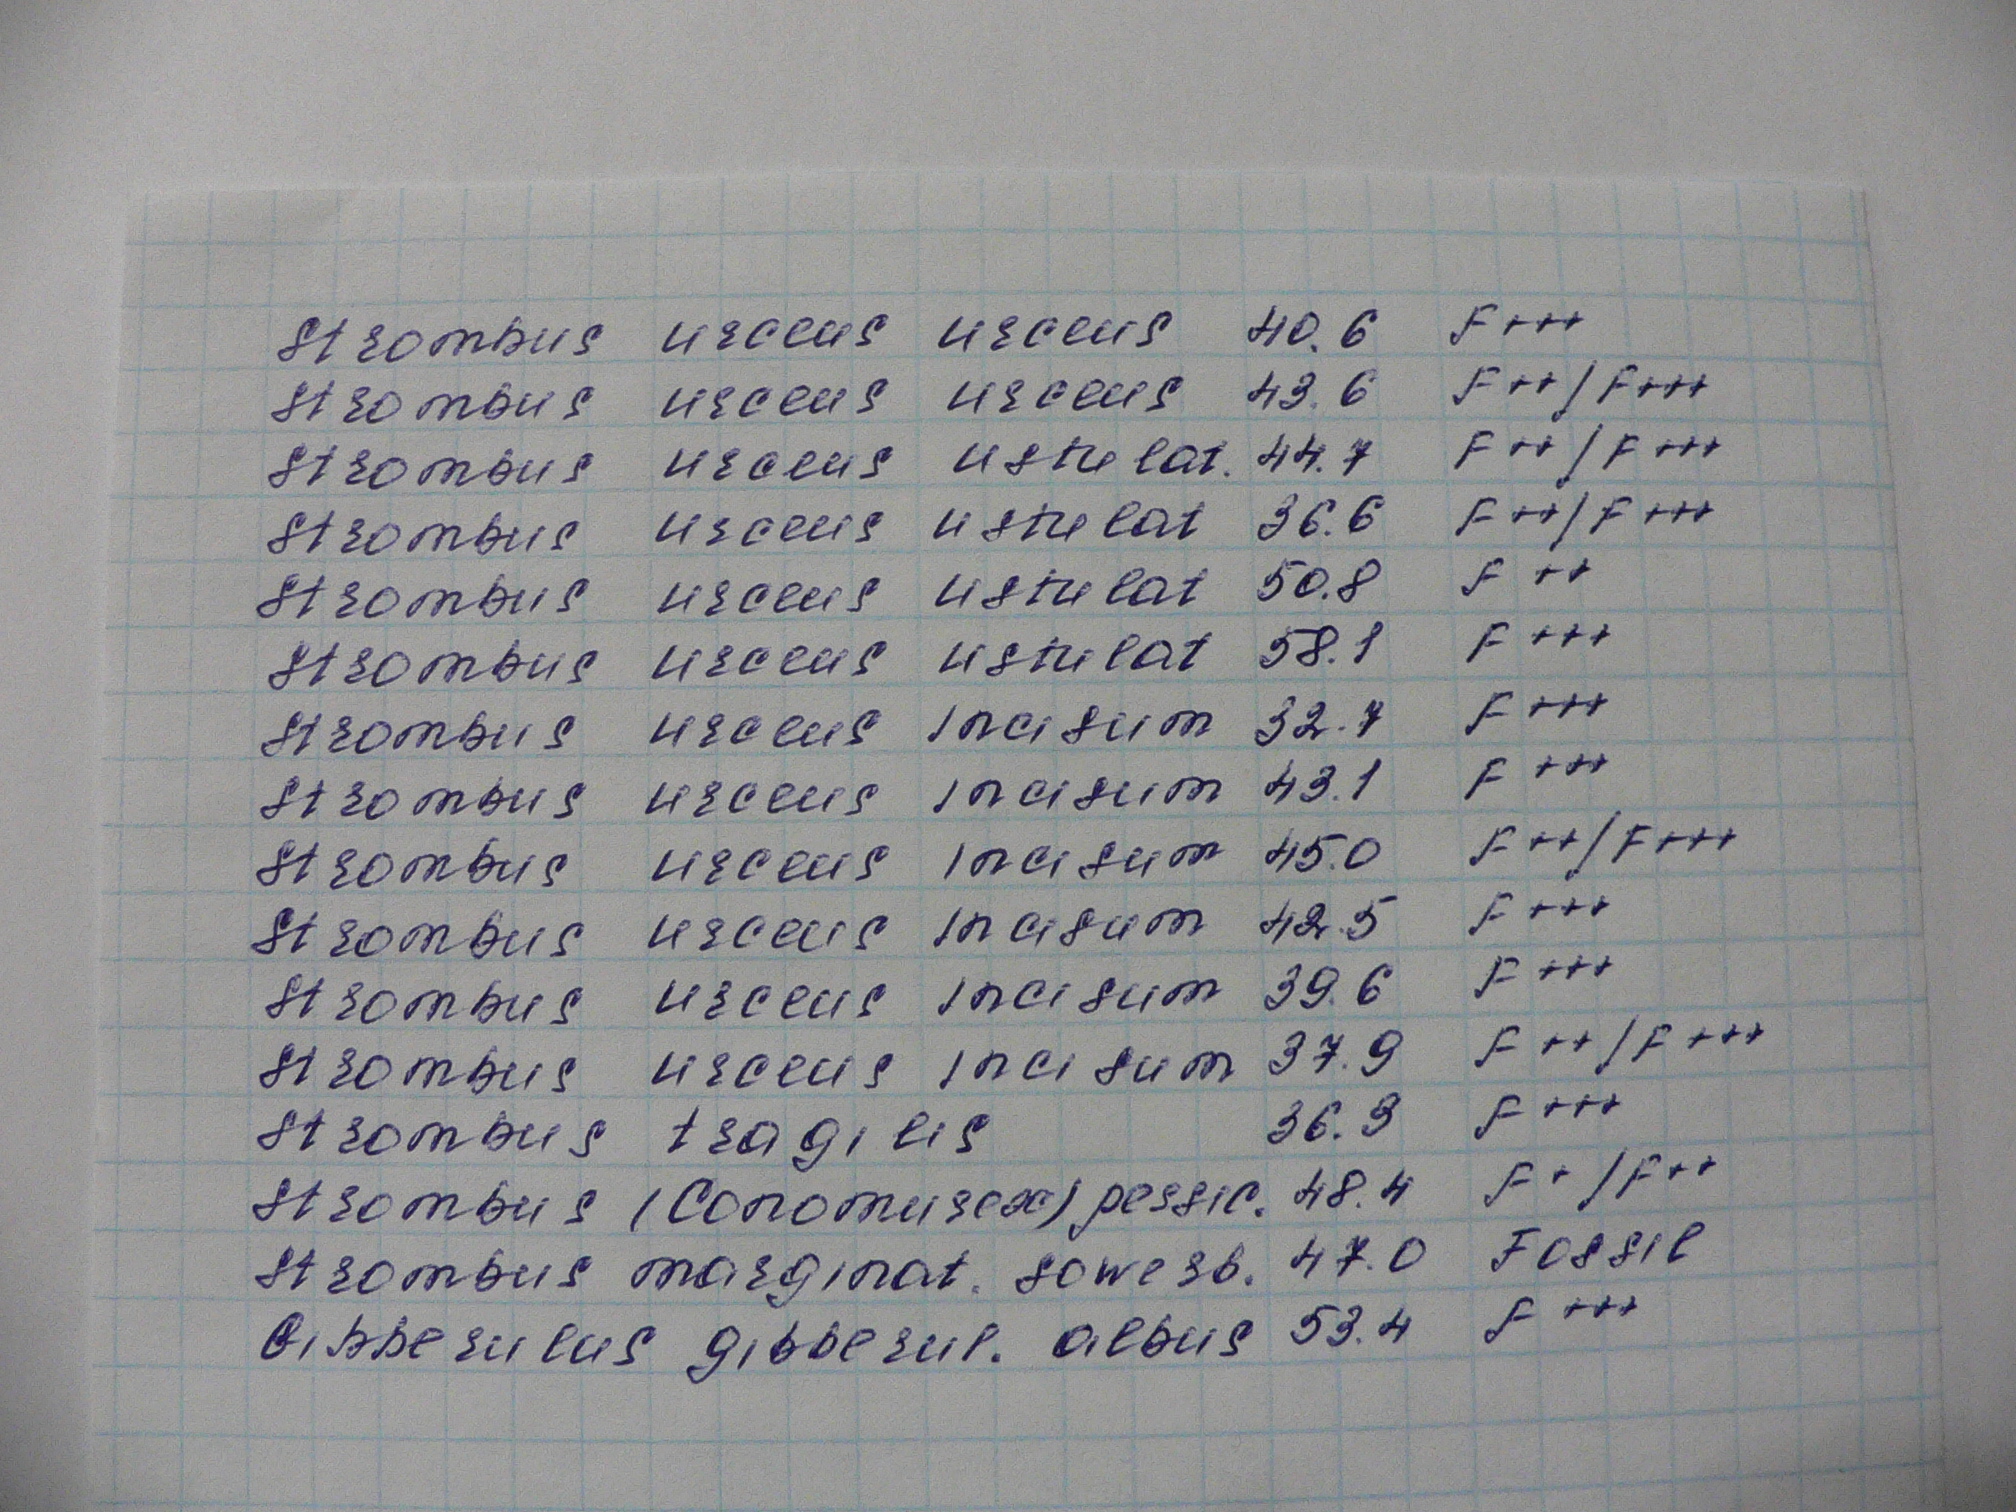 Strombus urceus urceus 40.6 F+++
Strombus urceus urceus 43.6 F++/F+++
Strombus urceus ustulat. 44.7 F++/F+++
Strombus urceus ustulat 36.6 F++/F+++
Strombus urceus ustulat 50.8 F++
Strombus urceus ustulat 58.1 F+++
Strombus urceus incisum 32.7 F+++
Strombus urceus incisum 43.1 F+++
Strombus urceus incisum 45.0 F++/F+++
Strombus urceus incisum 42.5 F+++
Strombus urceus incisum 39.6 F+++
Strombus urceus incisum 37.9 F++/F+++
Strombus tragilis 36.3 F+++
Strombus (Conomurex) perssic. 48.4 F+/F++
Strombus marginat. sowerb. 47.0 Fossil
Gibberulus gibberul. albus 53.4 F+++